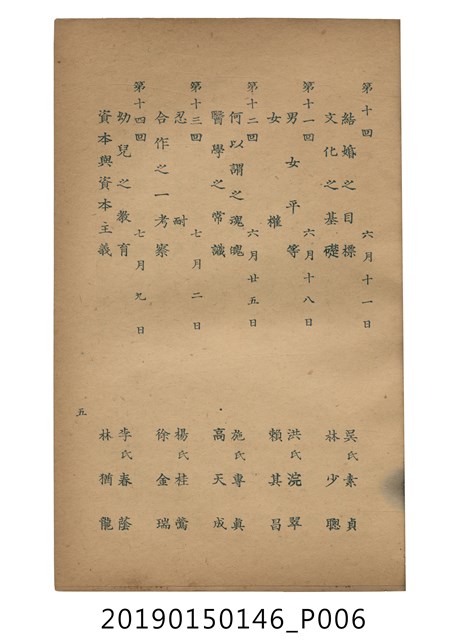 第十回　六月十一日
結婚之目標　吳氏素貞
文化之基礎　林少聰
第十一回　六月十八日
男女平等　洪氏浣翠
女權　賴其昌
第十二回　六月廿五日
何以謂之魂魄　施氏專眞
醫學之常識　高天成
第十三回　七月二日
忍耐　楊氏桂鶯
合作之一考察　徐金瑞
第十四回　七月九日
幼兒之教育　李氏春蔭
資本與資本主義　林猶龍
五
20190150146_P006